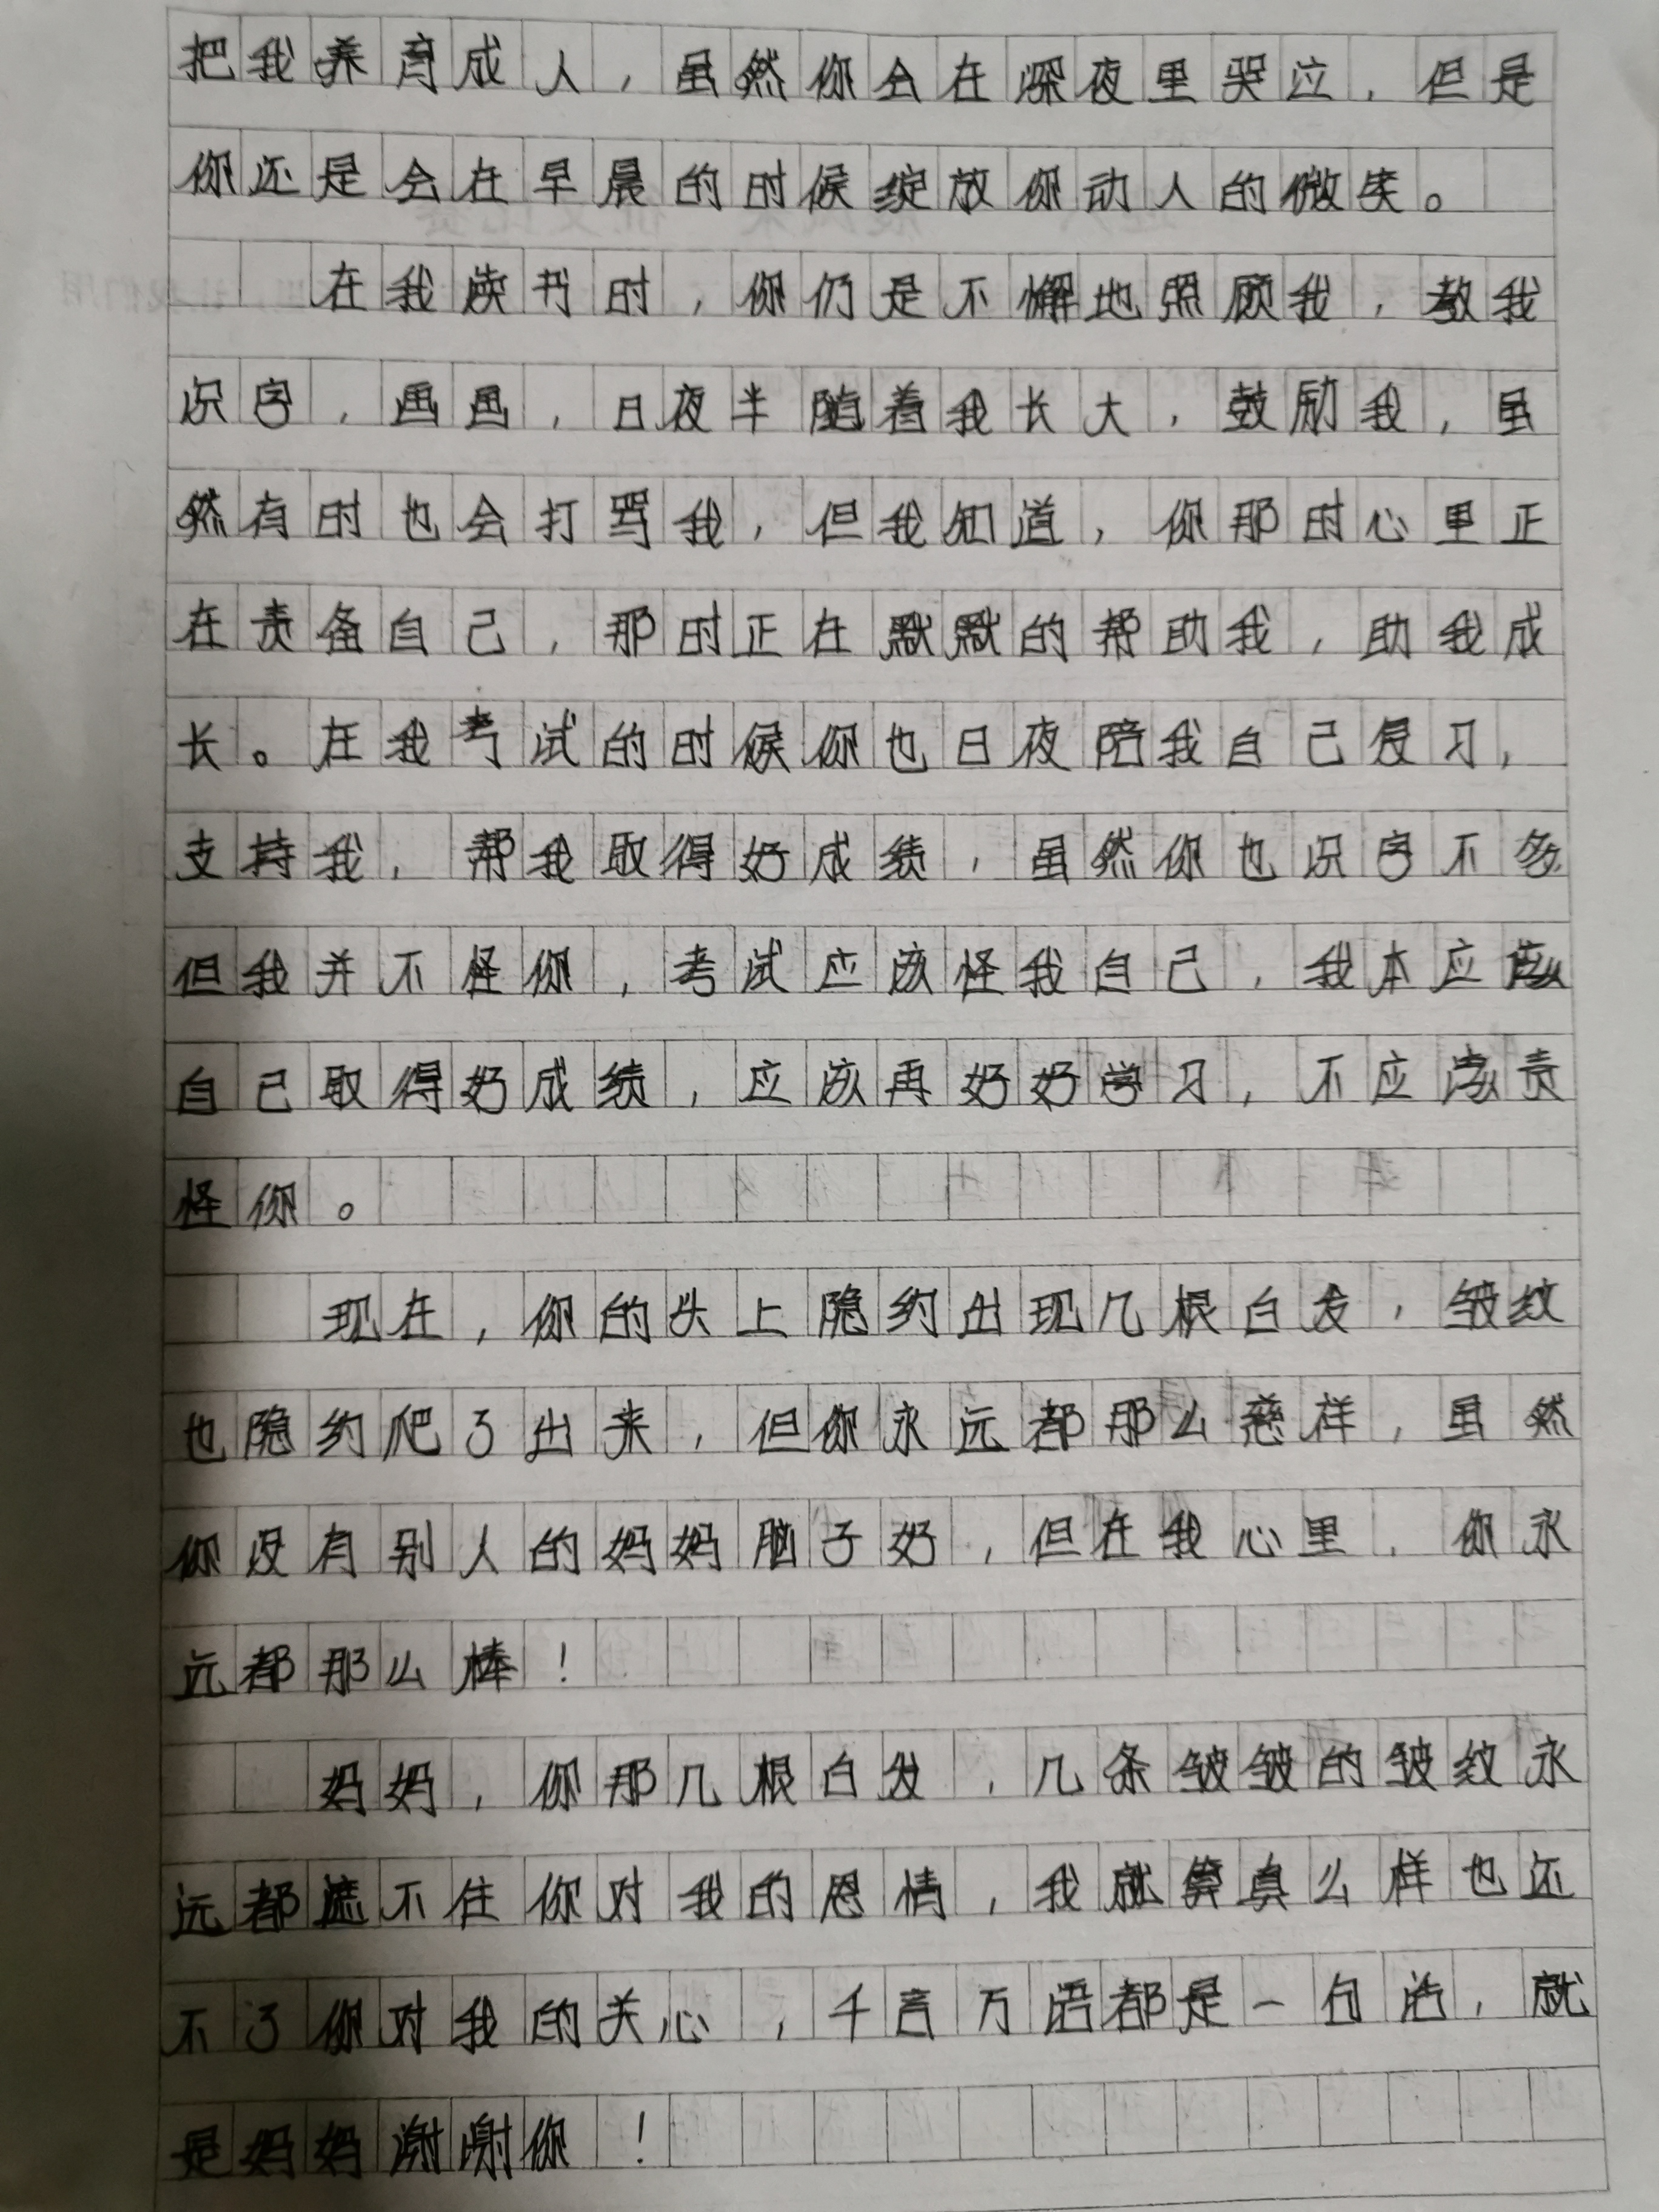 把我养育成人，虽然你会在深夜里哭泣，但是
你还是会在早晨的时候绽放你动人的微笑。
在我读书时，你们是不懈地照顾我，教我
识字，画画，日夜半随着我长大，鼓励我，虽
然有时也会打骂我，但我知道，你那时心里正
在责备自己，那时正在默默的帮助我，助我成
长。在我考试的时候你也日夜陪我自己复习，
支持我，帮我取得好成绩，虽然你也识字不多
但我并不怪你，考试应该怪我自己，我本应该
自己取得好成绩，应该再好好学习，不应该责
怪你。
现在，你的头上隐约出现几根白发，皱纹
也隐约爬了出来，但你永远都那么慈样，虽然
你没有别人的妈妈脑子好，但在我心里，你永
远都那么棒！
妈妈，你那几根白发，几条皱皱的皱纹永
远都遮不住你对我的恩情，我就算真么样也还
不了你对我的关心，千言万语都是一句话，就
是妈妈谢谢你！